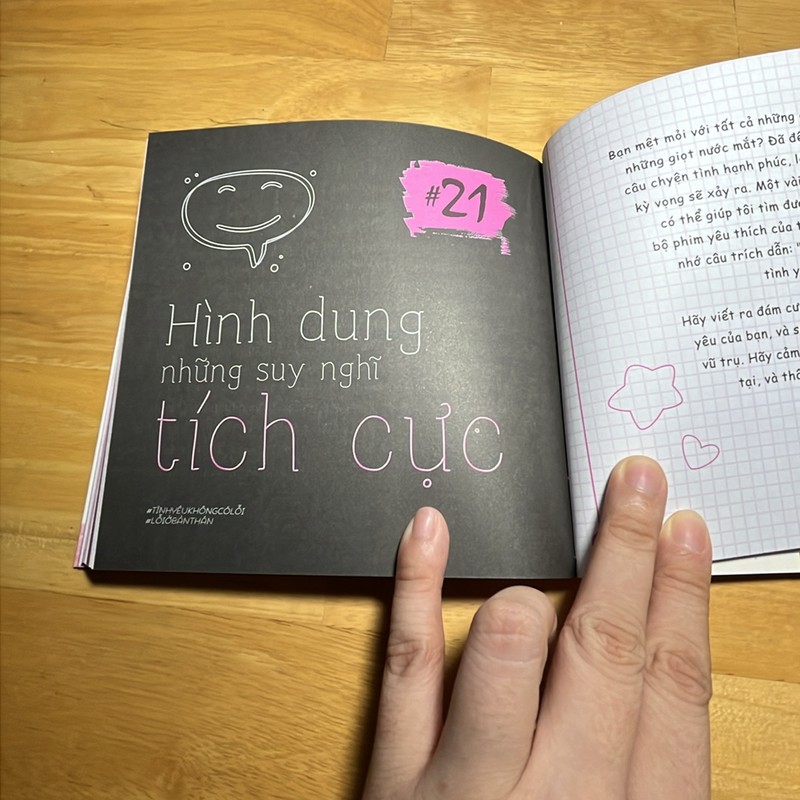 #21
Hình dung
những suy nghĩ
tích cực
#TÌNHYÊUKHÔNGCÓLỖI
#LỖIỞBẢNTHÂN
Bạn mệt mỏi với tất cả những
những giọt nước mắt? Đã đế
câu chyện tình hạnh phúc, l
kỳ vọng sẽ xảy ra. Một vài
có thể giúp tôi tìm đư
bộ phim yêu thích của t
nhớ câu trích dẫn: "
tình y
Hãy viết ra đám cư
yêu của bạn, và s
vũ trụ. Hãy cảm
tại, và thố